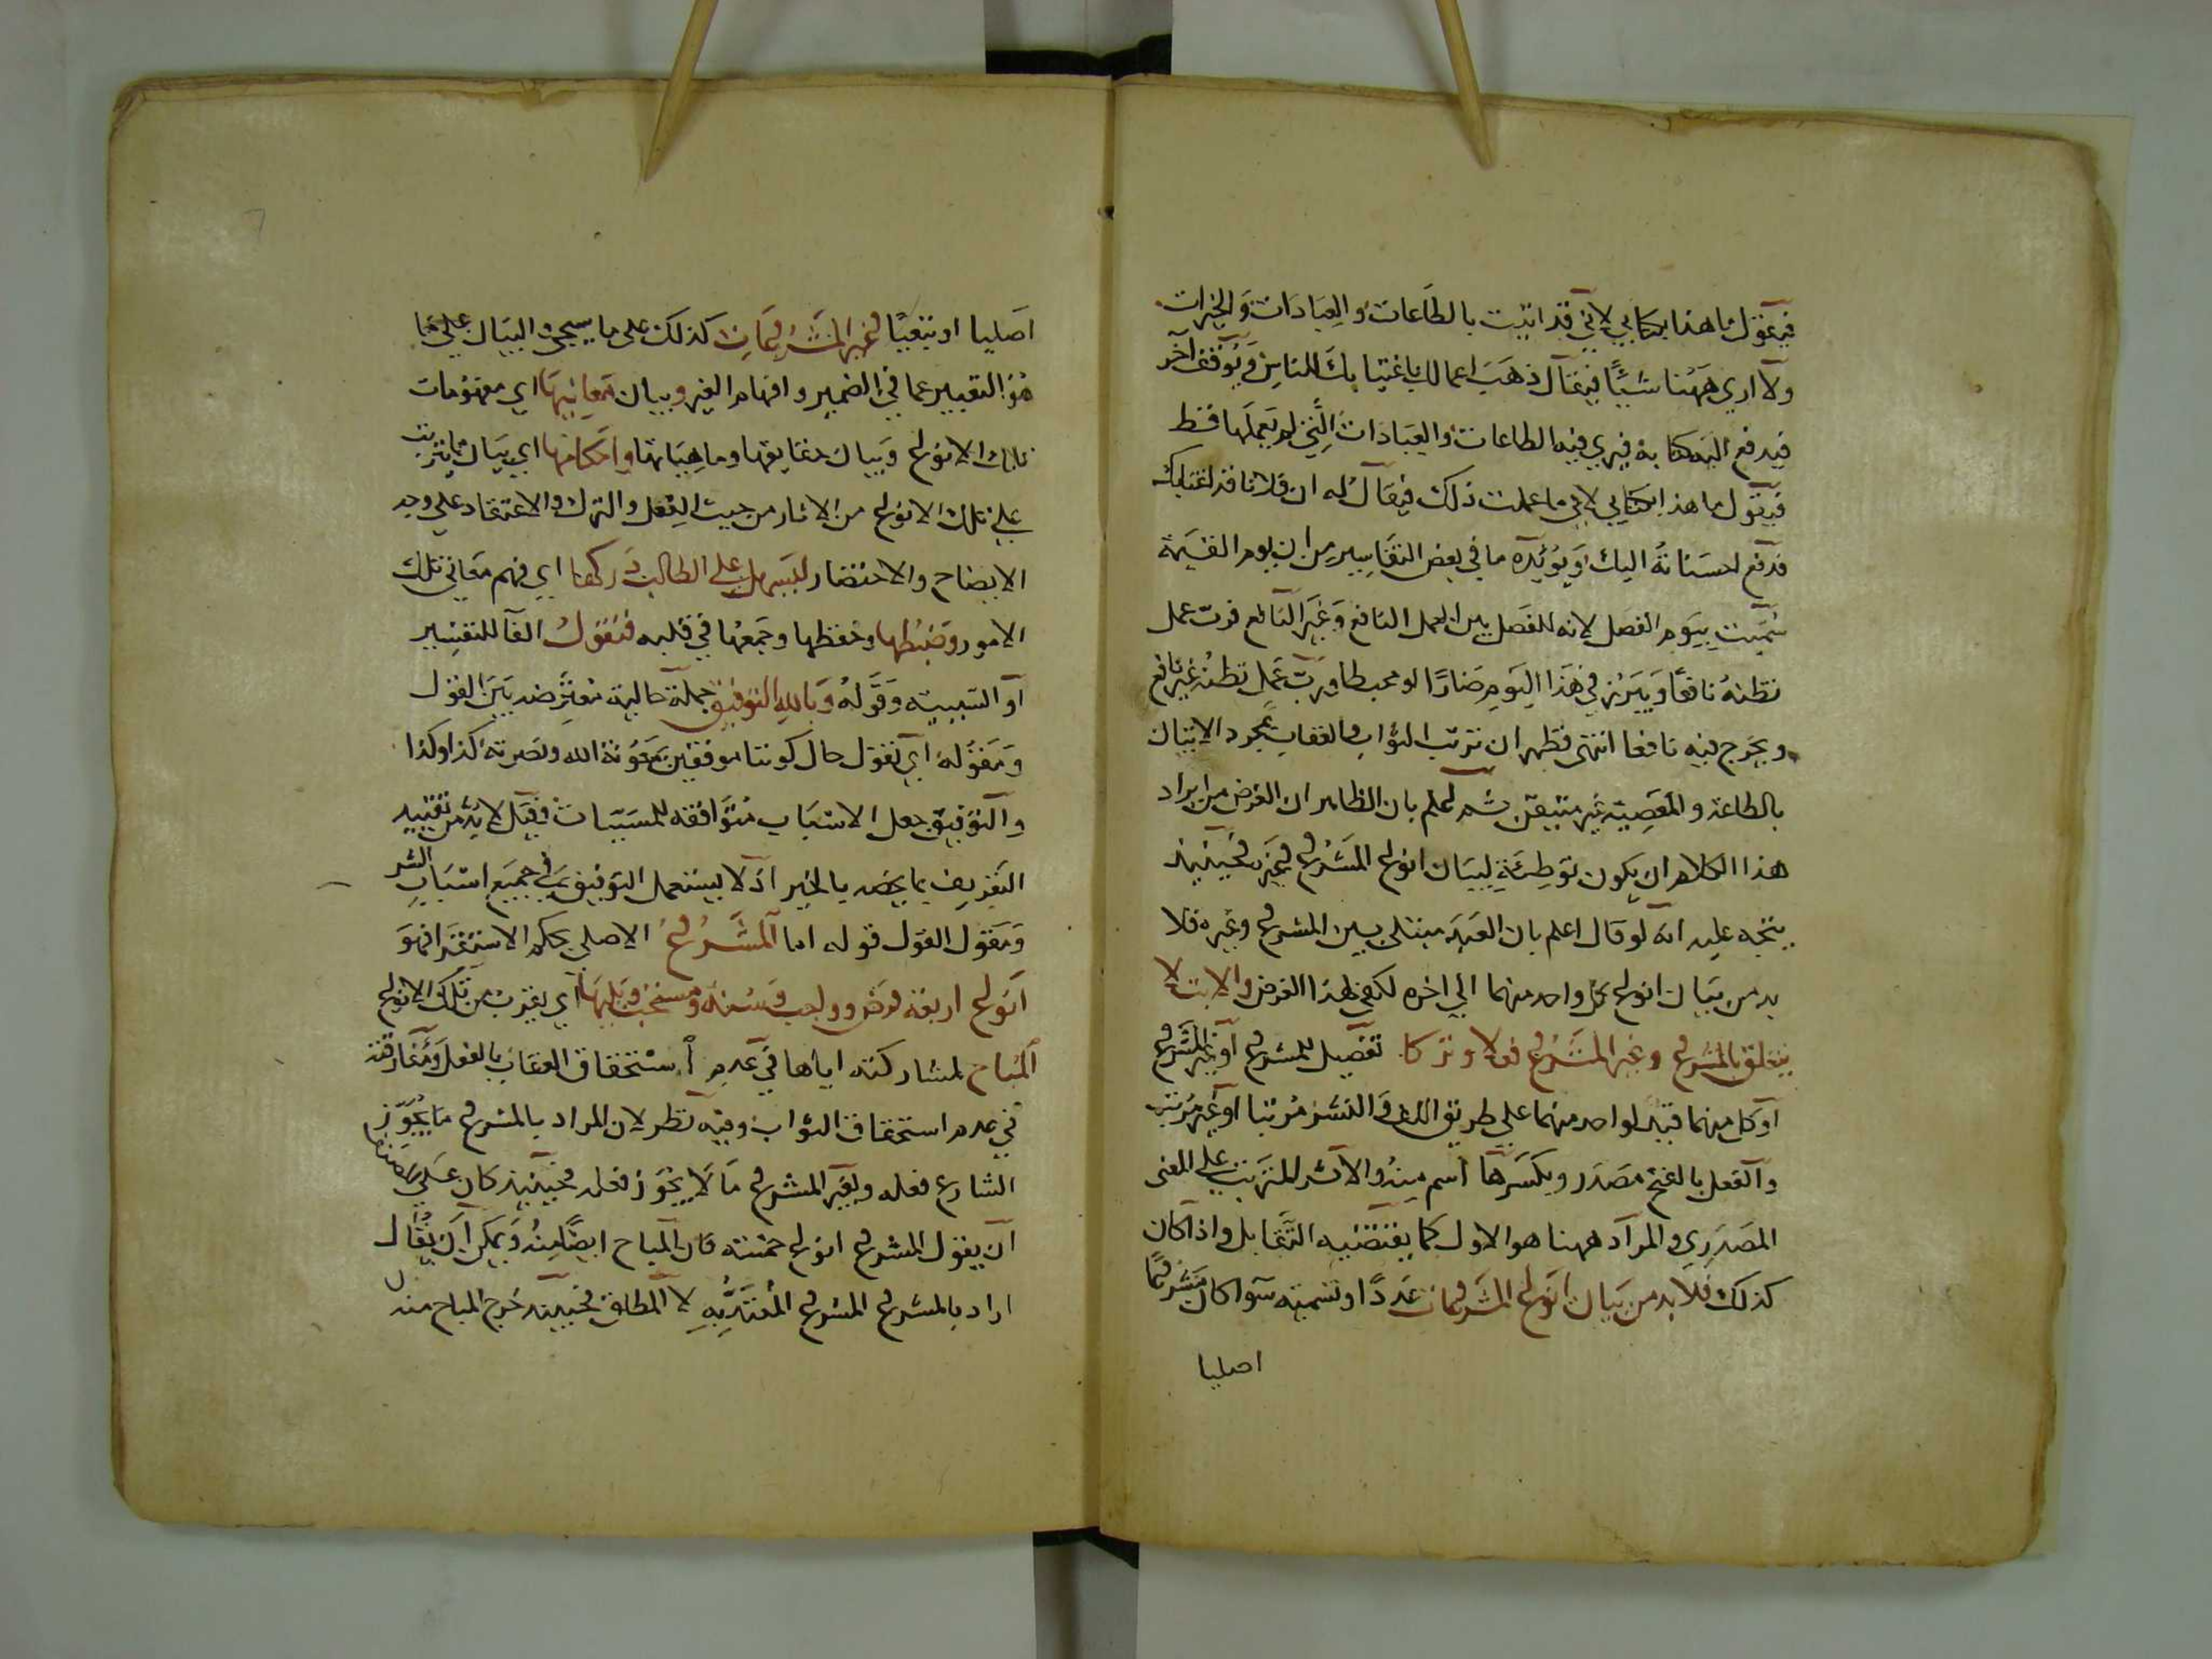 فيقول ما هذا بكتابي لاني قد اتيت بالطاعات والعبادات والخيرات
ولا اري ههنا شيئا فيقال ذهب اعمالك باغتيابك للناس ويوقف آخر
فيدفع اليه كتابه فيري فيه الطاعات والعبادات التي لم يعملها قط
فيقول ما هذا بكتابي لاني ما عملت ذلك فيقال له ان فلانا قد اغتابك
فدفع حسناته اليك ويؤيده ما في بعض التفاسير من ان يوم القيمة
سميت بيوم الفصل لانه للفصل بين العمل النافع وغير النافع فرب عمل
نظنه نافعا ويبرز في هذا اليوم ضارا او محبطا ورب عمل نظنه غير نافع
ويخرج فيه نافعا انتهى فظهر ان ترتب الثواب والعقاب بمجرد الاتيان
بالطاعة والمعصية غير متيقن ثم اعلم بان الظاهر ان الغرض من ايراد
هذا الكلام ان يكون توطئة لبيان انواع المشروع وغيره فحينئذ
يتجه عليه انه لو قال اعلم بان العبد مبتلى بين المشروع وغيره فلا
بد من بيان انواع كل واحد منهما الي اخره لكفى لهذا الغرض والابتلا
يتعلق بالمشروع وغير المشروع فعلا وتركا تفصيل للمشروع او غير المشروع
او كل منهما قيد لواحد منهما على طريق اللف والنشر مرتبا او غير مرتب
والفعل بالفتح مصدر وبكسرها اسم منه والاثر للمترتب على المعنى
المصدري والمراد ههنا هو الاول كما يقتضيه التقابل واذا كان
كذلك فلا بد من بيان انواع المشروعات عددا او تسمية سوا كان مشروعا
اصليا
اصليا او تبعيا وغير المشروعات كذلك على ما سيجيء والبيان علي ما
هو التعبير عما في الضمير وافهام الغير وبيان معانيها اي مفهومات
تلك الانواع وبيان حقايقها وماهياتها واحكامها اي بيان ما يترتب
علي تلك الانواع من الاثار من حيث الفعل والترك والاعتقاد على وجه
الايضاح والاختصار ليسهل على الطالب دركها اي فهم معاني تلك
الامور وضبطها وحفظها وجمعها في قلبه فنقول الفآ للتفسير
او السببية وقوله وبالله التوفيق جملة حالية معترضة بين القول
ومقوله اي نقول حال كوننا موفقين بمعونة الله ونصرته كذا وكذا
والتوفيق جعل الاسباب متوافقه للمسببات فقيل لا بد من تقييد
التعريف بما يخصه بالخير اذ لا يستعمل التوفيق في جميع اسباب الشر
ومقول القول قوله اما المشروع الاصلي بحكم الاستقرا فهو
انواع اربعة فرض وواجب وسنة ومستحب ويليها اي يقرب من تلك الانواع
المباح لمشاركته اياها في عدم استحقاق العقاب بالفعل ومفارقته
في عدم استحقاق الثواب وفيه نظر لان المراد بالمشروع ما يجوز
الشارع فعله وبغير المشروع ما لا يجوز فعله فحينئذ كان على المصنف
ان يقول المشروع انواع خمسة فان المباح ايضا منه ويمكن ان يقال
اراد بالمشروع المشروع المعتد به لا المطلق فحينئذ خرج المباح منه